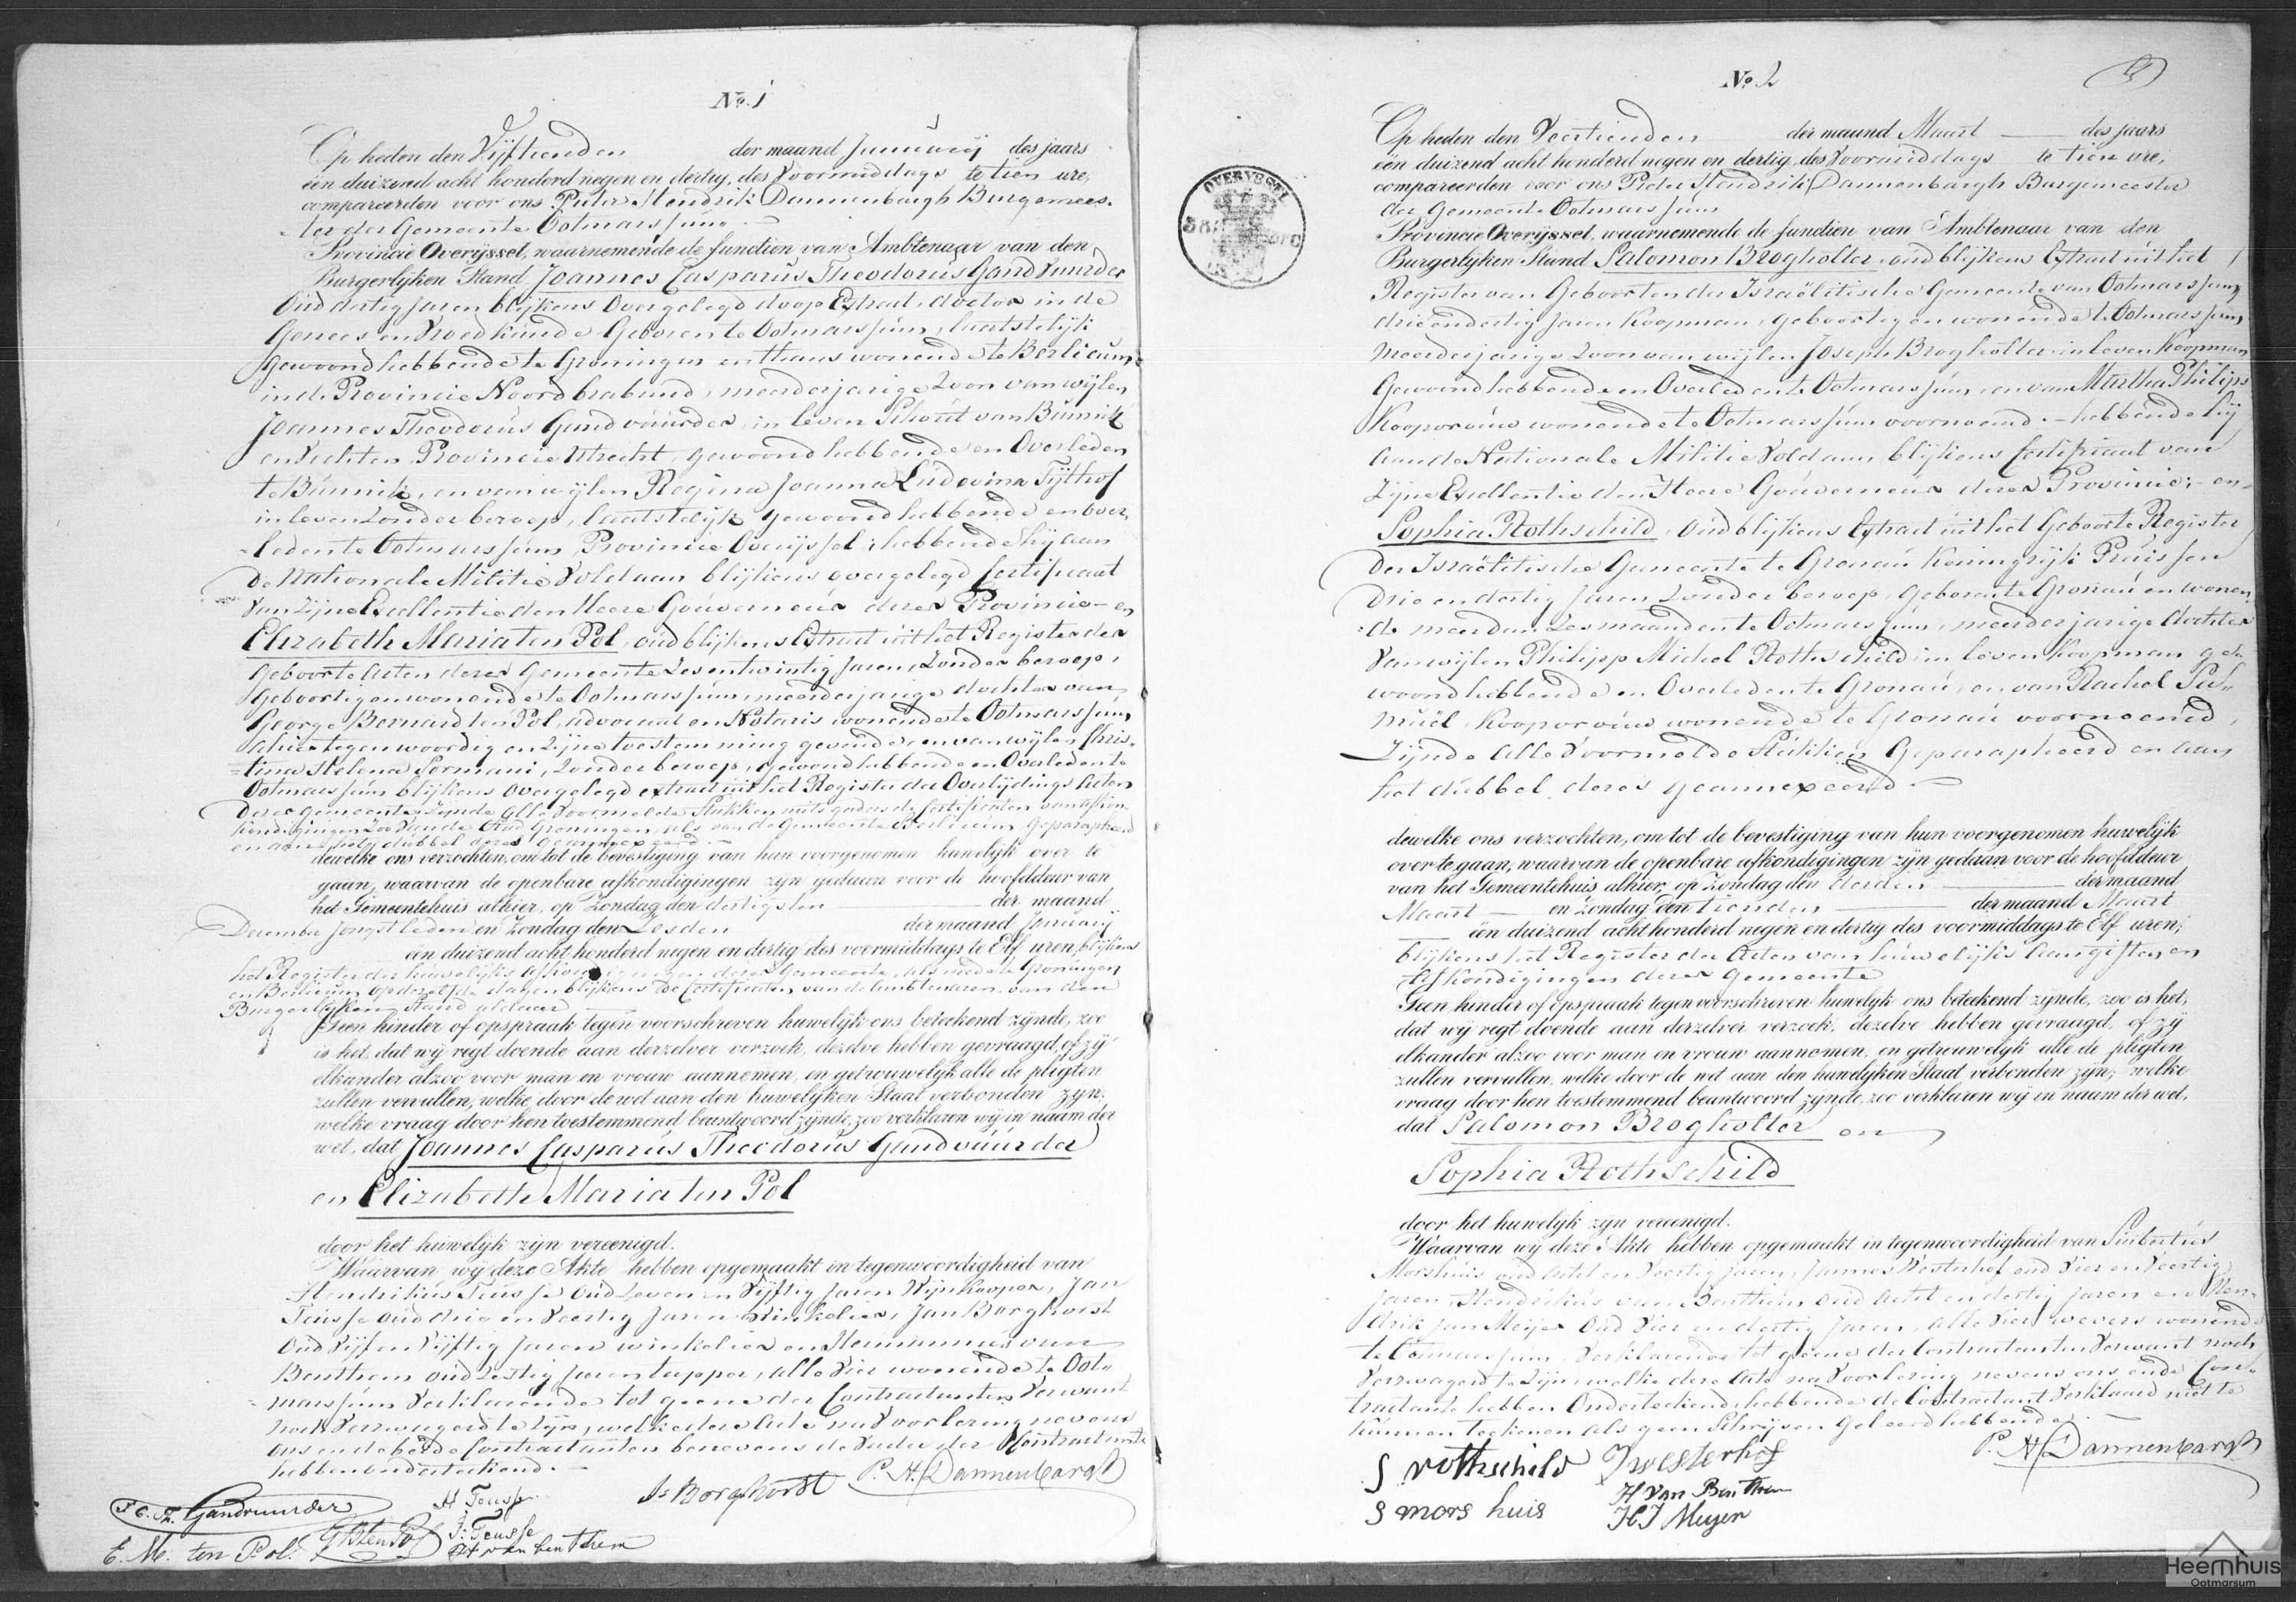 No. 1
Op heden den Vijftienden der maand Januarij des jaars
een duizend acht honderd negen en dertig, des Voormiddags te tien ure,
compareerden voor ons Pieter Hendrik Dannenbargh Burgemees-
-ter der Gemeente Ootmarssum
Provincie Overijssel, waarnemende de functien van Ambtenaar van den
Burgerlijken Stand Joannes Casparus Theodorus Gandvuurder
Oud dertig Jaren blijkens overgelegd doop Extract, doctor in de
Genees en Vroedkunde Geboren te Ootmarssum, laatstelijk
gewoond hebbende te Groningen en thans wonende te Berlicum
in de Provincie Noordbraband, meerderjarige Zoon van wijlen
Joannes Theodorus Gandvuurder, in leven Schout van Bunnik
en Vechten Provincie Utrecht, gewoond hebbende en Overleden
te Bunnik, en van wijlen Regina Joanna Ludovina Tijthof
in leven Zonder beroep, laatstelijk gewoond hebbende en over-
-leden te Ootmarssum, Provincie Overijssel; hebbende hij aan
de Nationale Militie Voldaan blijkens overgelegd Certificaat
van Zijne Excellentie den Heere Gouverneur dezer Provincie - en
Elizabeth Maria ten Pol, oud blijkens Extract uit het Register der
Geboorte Acten dezer Gemeente Zes en twintig Jaren, Zonder beroep,
Geboortig en wonende te Ootmarssum, meerderjarige dochter van
George Bernard ten Pol, advocaat en Notaris wonende te Ootmarssum,
alhier tegenwoordig en Zijne toestemming gevende, en van wijlen Chris-
-tina Helena Sormani, Zonder beroep, gewoond hebbende en Overleden te
Ootmarssum blijkens Overgelegd extract uit het Register der Overlijdings Acten
dezer Gemeente; zijnde alle Voormelde Stukken mitsgaders de Certificaten van Afkon-
kondigingen Zoo van de Stad Groningen, als van de Gemeente Berlicum Geparapheerd
en aan het dubbel dezes Geannexeerd. -
dewelke ons verzochten, om tot de bevestiging van hun voorgenomen huwelijk over te
gaan, waarvan de openbare afkondigingen zijn gedaan voor de hoofddeur van
het Gemeentehuis alhier, op Zondag den dertigsten der maand
December Jongstleden en Zondag den Zesden der maand Januarij
een duizend acht honderd negen en dertig des voormiddags te Elf uren, blijkens
het Register der huwelijks afkondigingen dezer Gemeente, als mede te Groningen
en Berlicum op dezelfde dagen blijkens de Certificaten van de Ambtenaren van den
Burgerlijken Stand aldaar
Geen hinder of opspraak tegen voorschreven huwelijk ons beteekend zijnde, zoo
is het, dat wij regt doende aan derzelver verzoek, dezelve hebben gevraagd, of zij
elkander alzoo voor man en vrouw aannemen, en getrouwelijk alle de pligten
zullen vervullen, welke door de wet aan den huwelijken Staat verbonden zijn;
welke vraag door hen toestemmend beantwoord zijnde, zoo verklaren wij in naam der
wet, dat Joannes Casparus Theodorus Gandvuurder
en Elizabeth Maria ten Pol
door het huwelijk zijn vereenigd.
Waarvan wij deze Akte hebben opgemaakt in tegenwoordigheid van
Hendrikus Teusse Oud Zeven en Vijftig Jaren Wijnkooper, Jan
Teusse Oud drie en Veertig Jaren Winkelier, Jan Borghorst
Oud Vijf en Vijftig Jaren winkelier en Hermannus van
Benthem oud Zestig Jaren tapper, alle Vier wonende te Oot-
-marssum Verklarende tot geene der Contractanten Verwant
noch Verzwagerd te Zijn, welke deze Acte na Voorlezing nevens
ons en de beide Contractanten benevens de Vader der Contractante
hebben onderteekend. -
J. C. Th. Gandvuurder
H Teusse
Js Borghorst
P. H. Dannenbargh
E. M. ten Pol.
GB ten Pol
J. Teusse
H van benthem
No. 2
Op heden den Veertienden der maand Maart des jaars
een duizend acht honderd negen en dertig, des Voormiddags te tien ure,
compareerden voor ons Pieter Hendrik Dannenbargh Burgemeester
der Gemeente Ootmarssum
Provincie Overijssel, waarnemende de functien van Ambtenaar van den
Burgerlijken Stand Salomon Brogholter, oud blijkens Extract uit het
Register van Geboorten der Israëlitische Gemeente van Ootmarssum
drie en dertig Jaren Koopman, geboortig en wonende te Ootmarssum
meerderjarige Zoon van wijlen Joseph Brogholter in leven Koopman
Gewoond hebbende en Overleden te Ootmarssum, en van Martha Philips
Koopvrouw wonende te Ootmarssum voornoemd. - hebbende hij
aan de Nationale Militie Voldaan blijkens Certificaat van
Zijne Excellentie den Heere Gouverneur dezer Provincie; - en
Sophia Rothschild, Oud blijkens Extract uit het Geboorte Register
der Israëlitische Gemeente te Gronau Koningrijk Pruissen
drie en dertig Jaren Zonder beroep, Geboren te Gronau en wonen-
-de meer dan Zes maanden te Ootmarssum, meerderjarige dochter
van wijlen Philipp Michel Rothschild in leven Koopman ge-
woond hebbende en Overleden te Gronau, en van Rachel Sa-
muël Koopvrouw wonende te Gronau voornoemd,
Zijnde alle Voormelde Stukken Geparapheerd en aan
het dubbel dezes geannexeerd. -
dewelke ons verzochten, om tot de bevestiging van hun voorgenomen huwelijk
over te gaan, waarvan de openbare afkondigingen zijn gedaan voor de hoofddeur
van het Gemeentehuis alhier, op Zondag den derden der maand
Maart en Zondag den tienden der maand Maart
een duizend acht honderd negen en dertig des voormiddags te Elf uren;
blijkens het Register der Acten van huwelijks Aangiften en
Afkondigingen dezer Gemeente
Geen hinder of opspraak tegen voorschreven huwelijk ons beteekend zijnde, zoo is het,
dat wij regt doende aan derzelver verzoek, dezelve hebben gevraagd, of zij
elkander alzoo voor man en vrouw aannemen, en getrouwelijk alle de pligten
zullen vervullen, welke door de wet aan den huwelijken Staat verbonden zijn; welke
vraag door hen toestemmend beantwoord zijnde, zoo verklaren wij in naam der wet,
dat Salomon Brogholter en
Sophia Rothschild
door het huwelijk zijn vereenigd.
Waarvan wij deze Akte hebben opgemaakt in tegenwoordigheid van Suibertus
Morshuis oud acht en Veertig Jaren, Jannes Westerhof oud Vier en Veertig
Jaren, Hendrikus van Benthem, oud acht en dertig Jaren en Hen-
drik Jan Meijer Oud Vier en dertig Jaren, alle Vier wevers wonende
te Ootmarssum Verklarende tot geene der Contractanten Verwant noch
Verzwagerd te Zijn, welke deze Acte na Voorlezing nevens ons en de Con-
tractante hebben Onderteekend, hebbende de Contractant Verklaard niet te
kunnen teekenen als geen Schrijven Geleerd hebbende. -
S rothschild
J westerhof
P. H. Dannenbargh
S mors huis
H Van Benthem
HJ Meyer
OVERYSSEL
Heemhuis
Ootmarsum